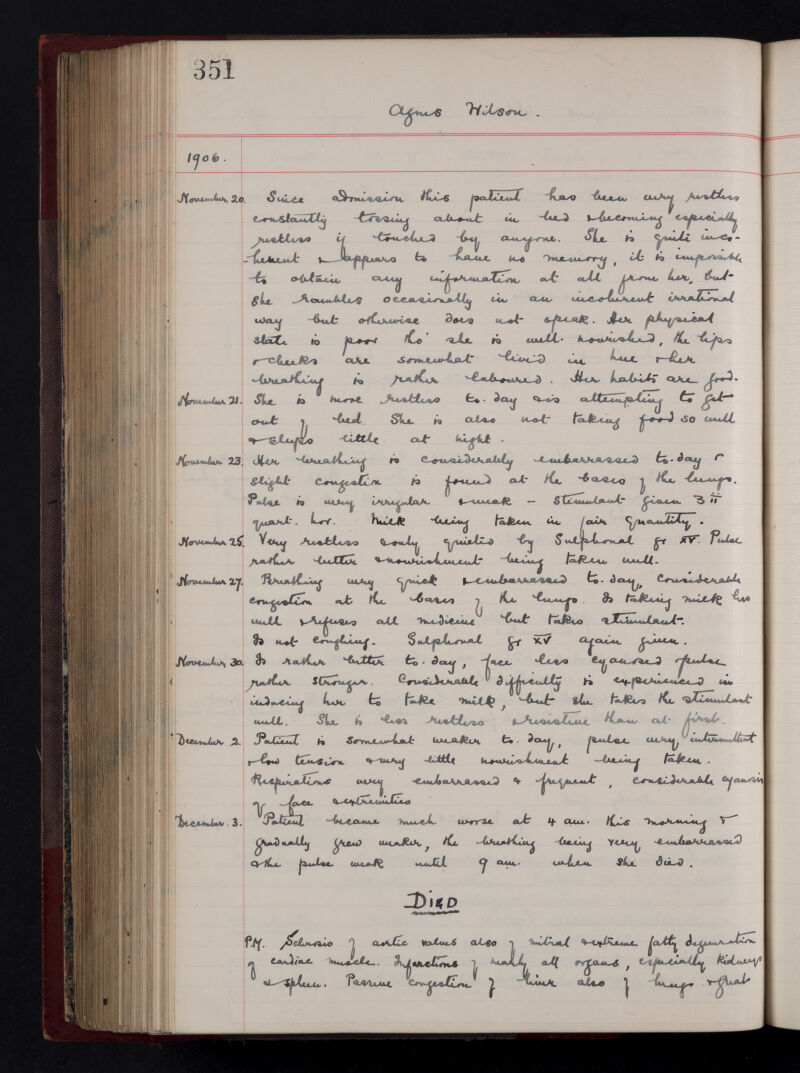 351
Agnes Wilson.
1906.
November. 20. Since admission this patient has been very restless
constantly tossing about in bed & becoming especially
restless if touched by anyone. She is quite inco-
herent & appears to have no memory, it is impossible
to obtain any information at all from her, but
she rambles occasionally in an incoherent irrational
way but otherwise does not speak. Her physical
state is poor tho' she is well-nourished, the lips
& cheeks are somewhat livid in hue & her
breathing is rather laboured. Her habits are good.
November 21. She is more restless to-day & is attempting to get
out of bed. She is also not taking food so well
& sleeps little at night.
November 23. Her breathing is considerably embarrassed to-day &
slight congestion is found at the bases of the lungs.
Pulse is very irregular & weak – Stimulant given ʒ ii
quart. hor. Milk being taken in fair quantity.
November 25. Very restless & only quieted by Sulphonal gr XV. Pulse
rather better & nourishment being taken well.
November 27. Breathing very quick & embarrassed to-day, considerable
congestion at the bases of the lungs. Is taking milk less
well & refuses all medicine but takes stimulant.
Is not coughing. Sulphonal gr XV again given.
November 30. Is rather better to-day, face less cyanosed & pulse
rather stronger. Considerable difficulty is experienced in
inducing her to take milk, but she takes the stimulant
well. She is less restless & resistive than at first.
December 2. Patient is somewhat weaker to-day, pulse very intermittent
& low tension & very little nourishment being taken.
Respirations very embarrassed & frequent, considerable cyanosis
of face & extremities
December. 3. Patient became much worse at 4 am. this morning &
gradually grew weaker, the breathing being very embarrassed
& the pulse weak until 9 am. when she died.
DIED
P.M. Sclerosis of aortic valves also of mitral & extreme fatty degeneration
of cardiac muscle. Infarctions of nearly all organs, especially kidneys
& spleen. Passive congestion of liver also of lungs & great